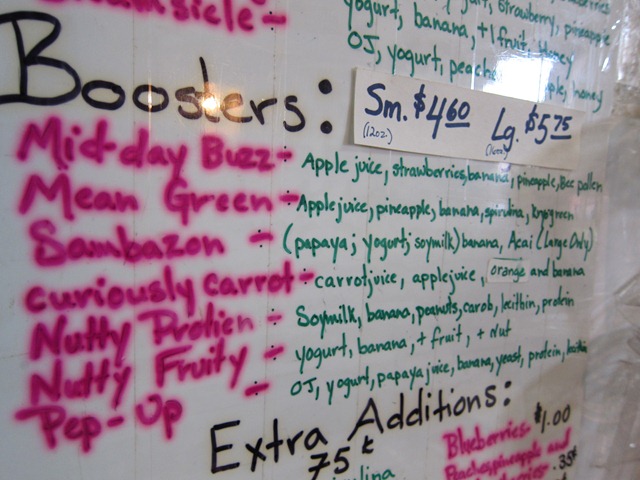 yogurt, banana, +1 fruit, Honey
OJ, yogurt, peach honey
Boosters:
Sm. $4.60 Lg. $5.75
(12oz)
Mid-day Buzz- Apple juice, strawberries, banana, pineapple, Bee pollen
Mean Green- Apple juice, pineapple, banana, spirulina,
Sambazon - (papaya j yogurt j soymilk) banana, Acai (Large Only)
curiously carrot- carrot juice, apple juice, orange and banana
Nutty Protien - Soymilk, banana, peanuts, carob, lecithin, protein
Nutty Fruity - yogurt, banana, + fruit, + nut
Pep-Up - OJ, yogurt, papaya juice, banana, yeast, protein, lecithin
Extra Additions:
75¢
Blueberries- $1.00
Peaches, pineapple and
.35¢